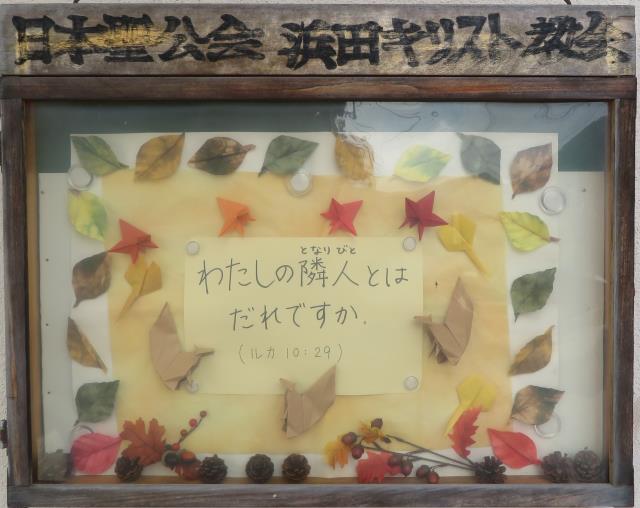 日本聖公会 浜田キリスト教会
となりびと
わたしの隣人とは
だれですか.
(ルカ 10:29)